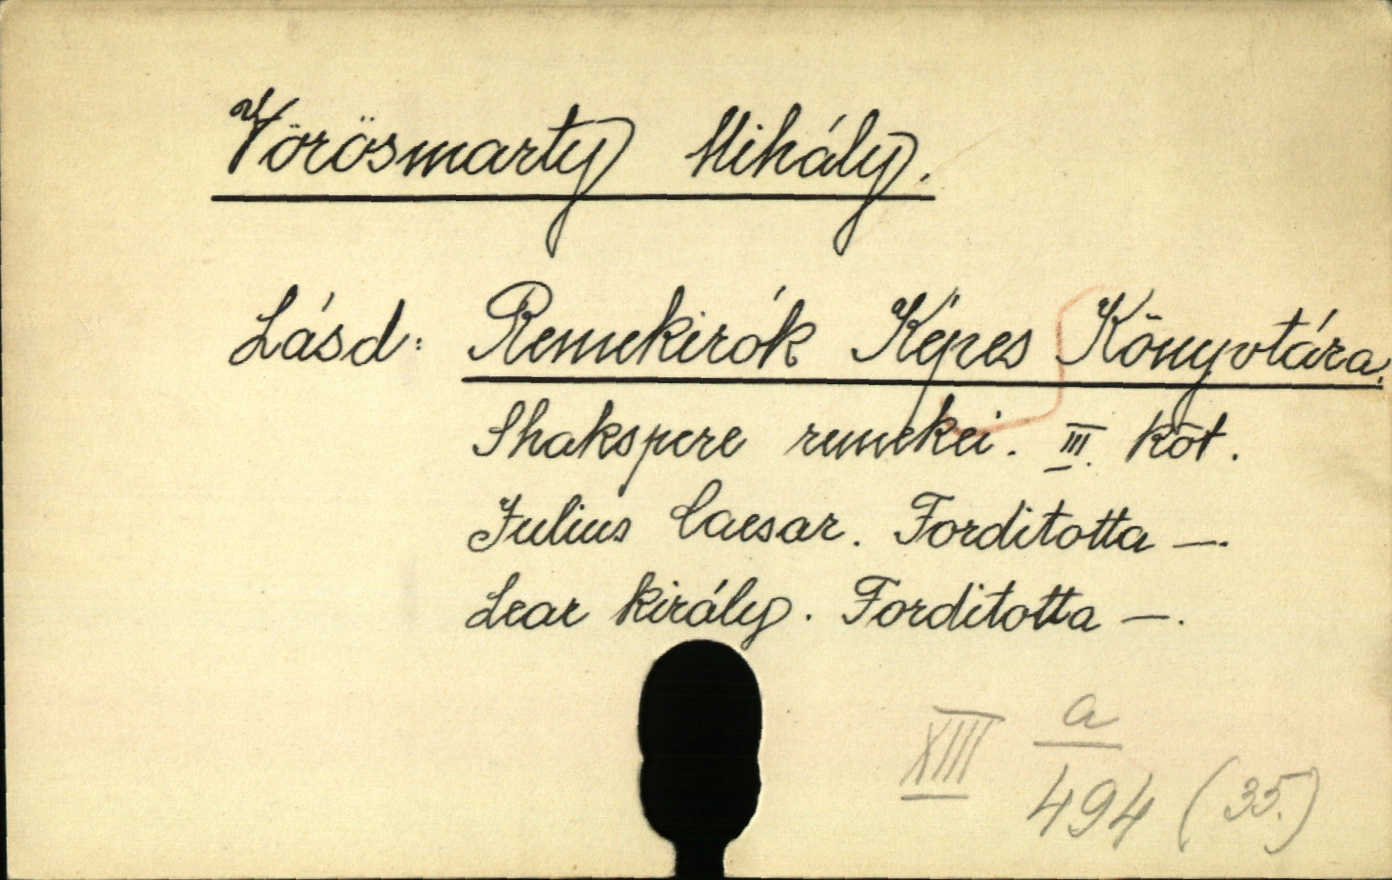 Vörösmarty Mihály.
Lásd: Remekirók Képes Könyvtára.
Shakspere remekei. III. köt.
Julius Caesar. Forditotta —.
Lear király. Forditotta —.
XIII a/494 (35.)